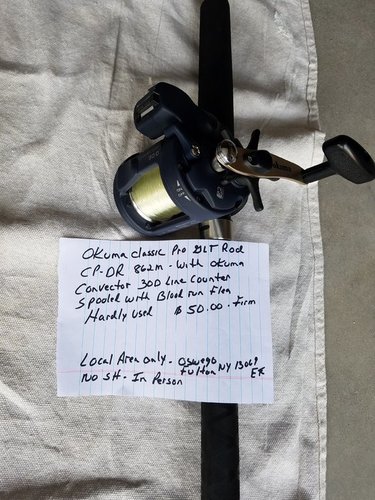 Okuma Classic Pro GLT Rod
CP-DR 862M - With Okuma
Convector 30D Line Counter
Spooled with Blood run Flea
Hardly Used $50.00. Firm
Local Area only - Oswego
Fulton NY 13069
No SH - In Person